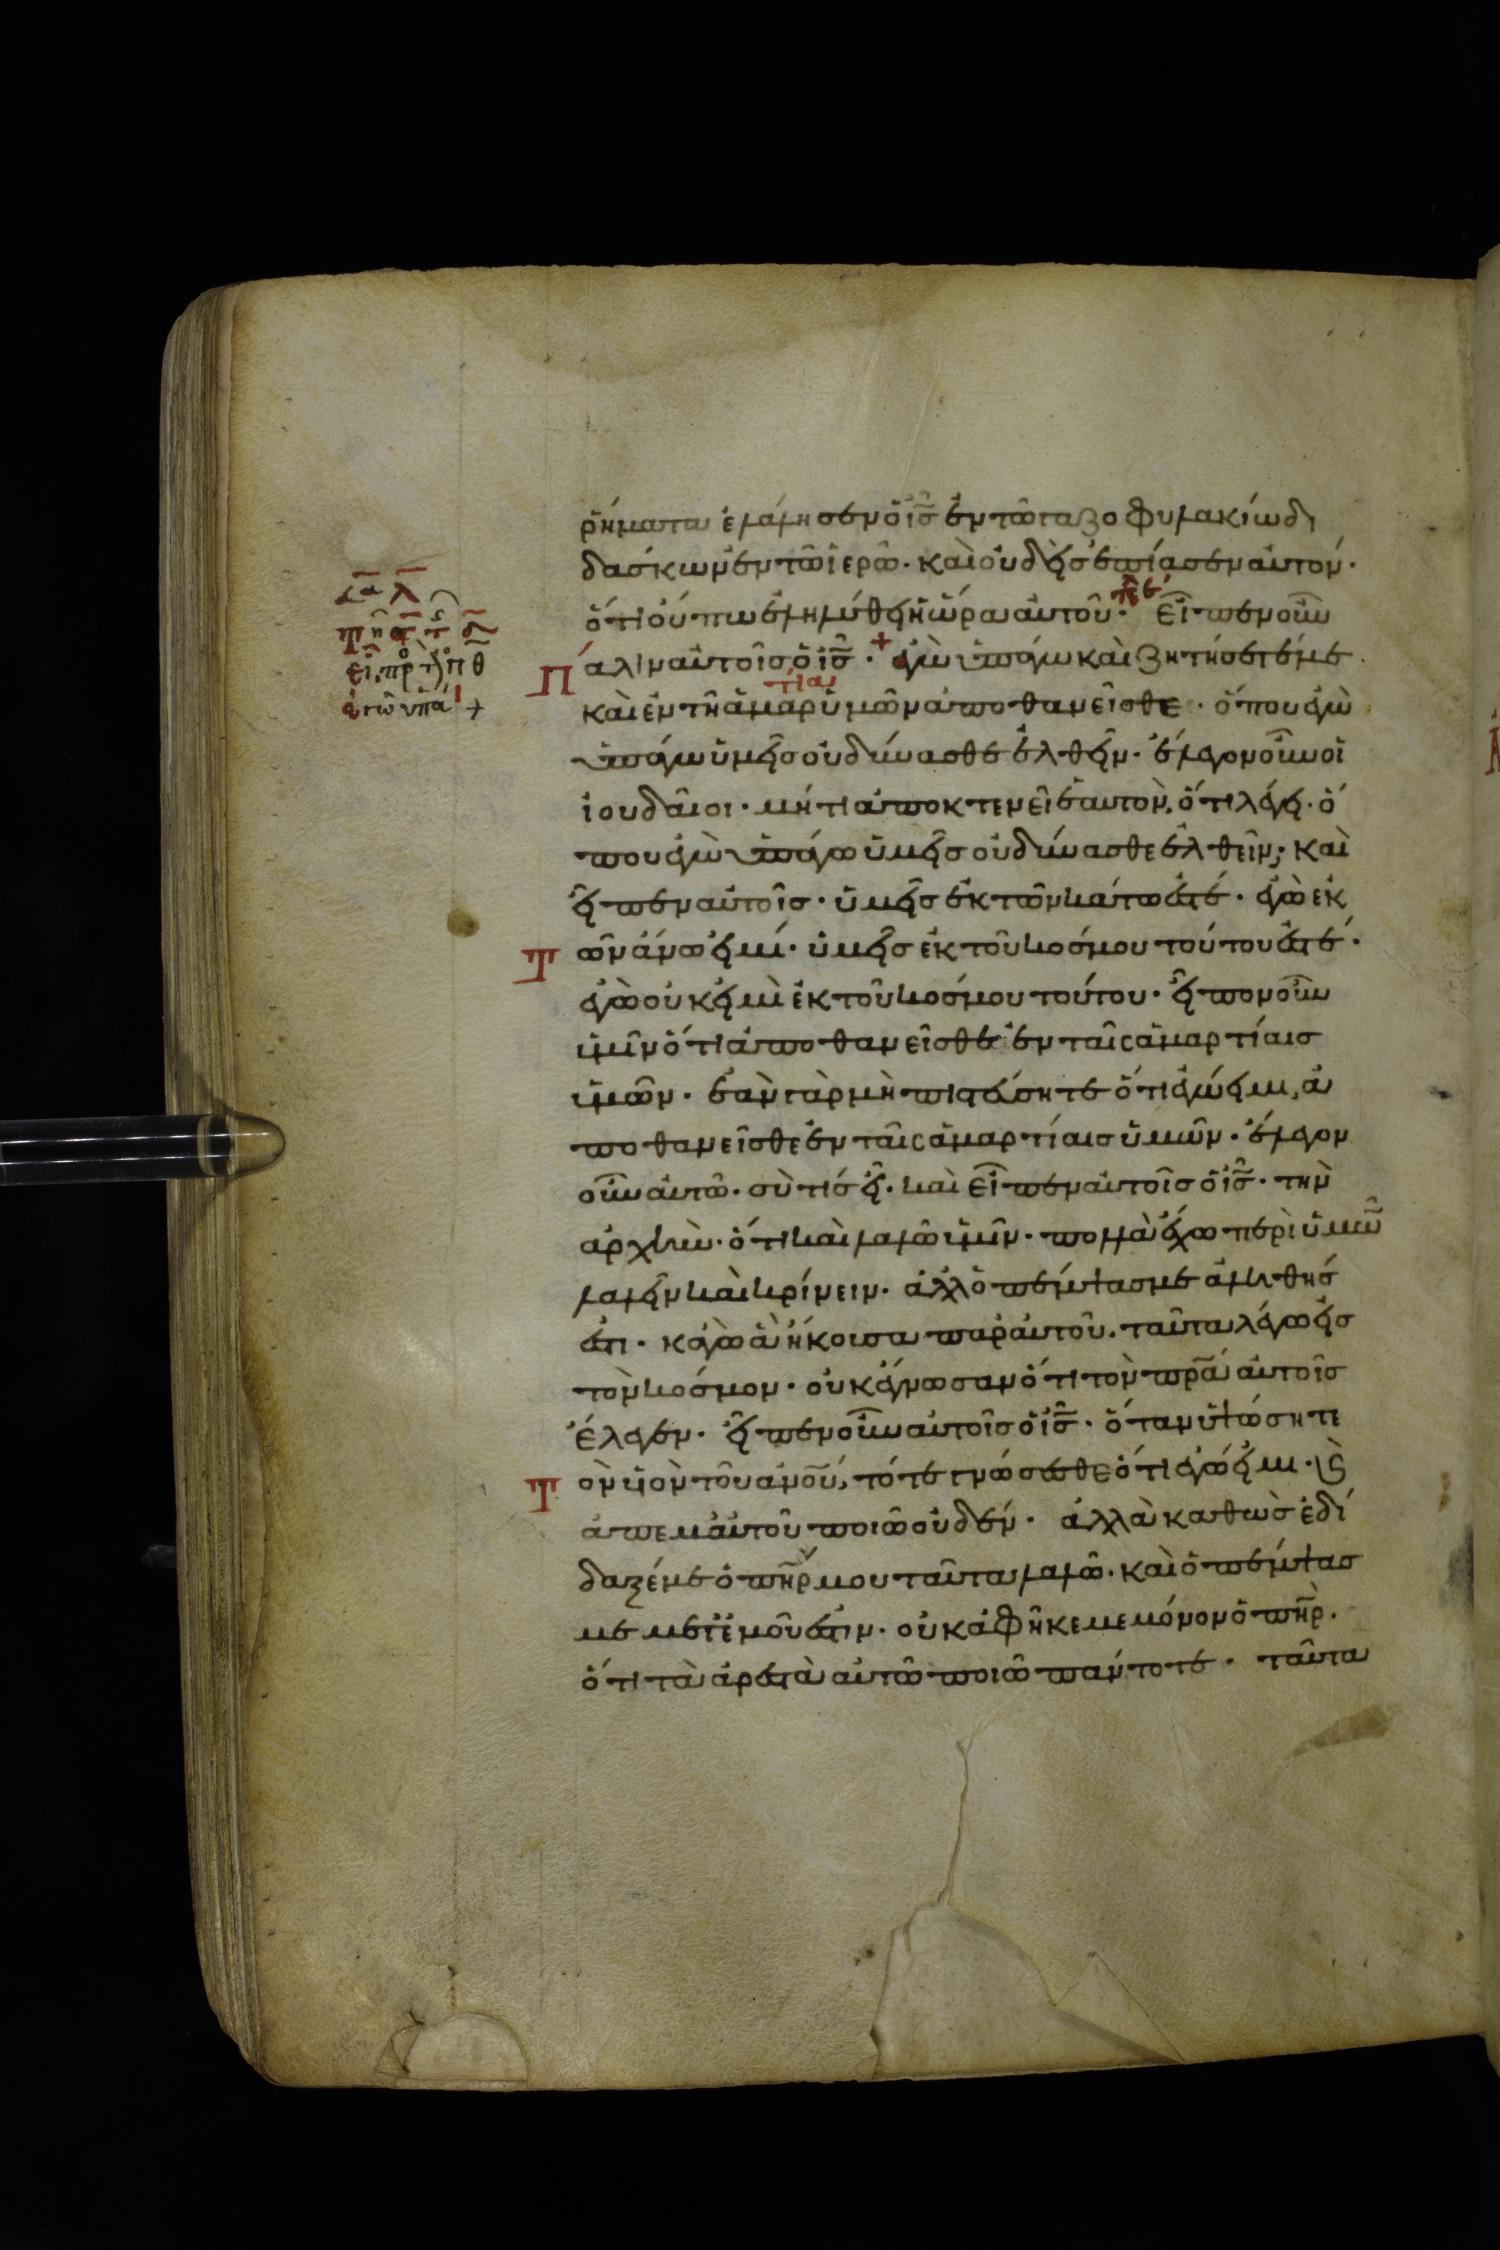 ῥήματα ἐλάλησεν ὁ ις ἐν τῶ γαζοφυλακίω δι
δάσκων ἐν τῶ ἱερῶ· καὶ οὐδεὶς ἐπίασεν αὐτόν·
ὅτι οὔπω ἐληλύθει ἡ ὥρα αὐτοῦ· εἶπεν οὖν
Πάλιν αὐτοῖς ὁ ις· + ἐγὼ ὑπάγω καὶ ζητήσετέ με
τίαι
καὶ ἐν τῆ ἁμαρ ὑμῶν ἀποθανεῖσθε· ὅπου ἐγὼ
ὑπάγω ὑμεῖς οὐ δύνασθε ἐλθεῖν· ἔλεγον οὖν οἱ
ἰουδαῖοι· μήτι ἀποκτενεῖ ἑαυτὸν, ὅτι λέγει· ὅ
που ἐγὼ ὑπάγω ὑμεῖς οὐ δύνασθε ἐλθεῖν; καὶ
εἶπεν αὐτοῖς· ὑμεῖς ἐκ τῶν κάτω ἐστέ· ἐγὼ ἐκ
Τῶν ἄνω εἰμί· ὑμεῖς ἐκ τοῦ κόσμου τούτου ἐστέ·
ἐγὼ οὐκ εἰμὶ ἐκ τοῦ κόσμου τούτου· εἶπον οὖν
ὑμῖν ὅτι ἀποθανεῖσθε ἐν ταῖς ἁμαρτίαις
ὑμῶν· ἐὰν γὰρ μὴ πιστεύσητε ὅτι ἐγώ εἰμι, ἀ
ποθανεῖσθε ἐν ταῖς ἁμαρτίαις ὑμῶν· ἔλεγον
οὖν αὐτῶ· σὺ τίς εἶ· καὶ εἶπεν αὐτοῖς ὁ ις· τὴν
ἀρχὴν· ὅτι καὶ λαλῶ ὑμῖν· πολλὰ ἔχω περὶ ὑμῶν
λαλεῖν καὶ κρίνειν· ἀλλ ὁ πέμψας με ἀληθής
ἐστι· κἀγὼ ἃ ἤκουσα παρ αὐτοῦ· ταῦτα λέγω εἰς
τὸν κόσμον· οὐκ ἔγνωσαν ὅτι τὸν πρα αὐτοῖς
ἔλεγεν· εἶπεν οὖν αὐτοῖς ὁ ις· ὅταν ὑψώσητε
Τὸν υἱὸν τοῦ ανου, τότε γνώσεσθε ὅτι ἐγώ εἰμι· κὶ
ἀπ ἐμαυτοῦ ποιῶ οὐδέν· ἀλλὰ καθὼς ἐδί
δαξέ με ὁ πηρ μου ταῦτα λαλῶ· καὶ ὁ πέμψας
με μετ ἐμοῦ ἐστιν· οὐκ ἀφῆκέ με μόνον ὁ πηρ·
ὅτι τὰ ἀρεστὰ αὐτῶ ποιῶ πάντοτε· ταῦτα